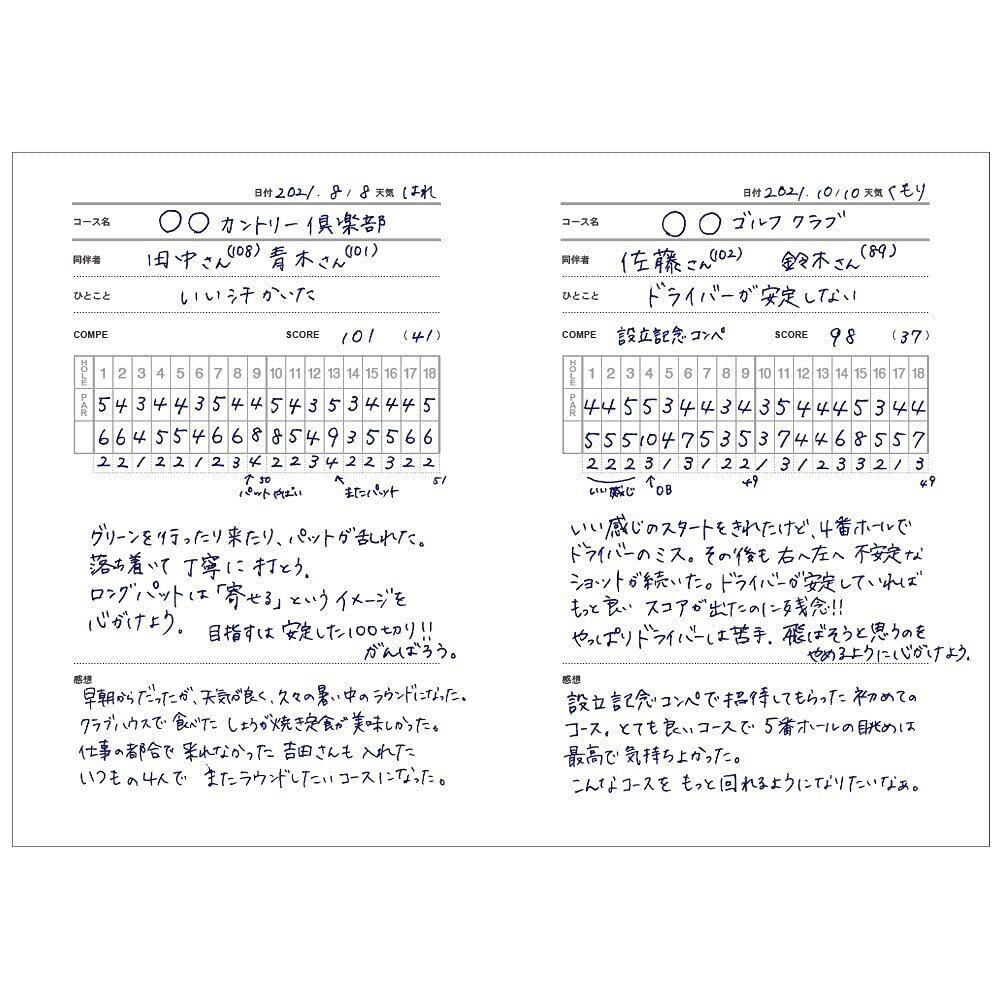 日付 2021. 8/8 天気 はれ
コース名 〇〇 カントリー倶楽部
同伴者 田中さん(108) 青木さん(101)
ひとこと いい汗かいた
COMPE SCORE 101 (41)
HOLE 1 2 3 4 5 6 7 8 9 10 11 12 13 14 15 16 17 18
PAR 5 4 3 4 4 3 5 4 4 5 4 3 5 3 4 4 4 5
6 6 4 5 5 4 6 6 8 8 5 4 9 3 5 5 6 6
2 2 1 2 2 1 2 3 4 2 2 3 4 2 2 3 2 2
↑50 51
パットやばい またパット
グリーンを行ったり来たり、パットが乱れた。
落ち着いて丁寧に打とう。
ロングパットは「寄せる」というイメージを
心がけよう。
目指すは安定した100切り!!
がんばろう。
感想
早朝からだったが、天気が良く、久々の暑い中のラウンドになった。
クラブハウスで食べたしょうが焼き定食が美味しかった。
仕事の都合で来れなかった吉田さんも入れた
いつもの4人でまたラウンドしたいコースになった。
日付 2021. 10/10 天気 くもり
コース名 〇〇 ゴルフクラブ
同伴者 佐藤さん(102) 鈴木さん(89)
ひとこと ドライバーが安定しない
COMPE 設立記念コンペ SCORE 98 (37)
HOLE 1 2 3 4 5 6 7 8 9 10 11 12 13 14 15 16 17 18
PAR 4 4 5 5 3 4 4 3 4 3 5 4 4 4 5 3 4 4
5 5 5 10 4 7 5 3 5 3 7 4 4 6 8 5 5 7
2 2 2 3 1 3 1 2 2 1 3 1 2 3 3 2 1 3
いい感じ ↑OB 49 49
いい感じのスタートをきれたけど、4番ホールで
ドライバーのミス。その後も右へ左へ不安定な
ショットが続いた。ドライバーが安定していれば
もっと良いスコアが出たのに残念!!
やっぱりドライバーは苦手。飛ばそうと思うのを
やめるように心がけよう。
感想
設立記念コンペで招待してもらった初めての
コース。とても良いコースで5番ホールの眺めは
最高で気持ちよかった。
こんなコースをもっと回れるようになりたいなぁ。